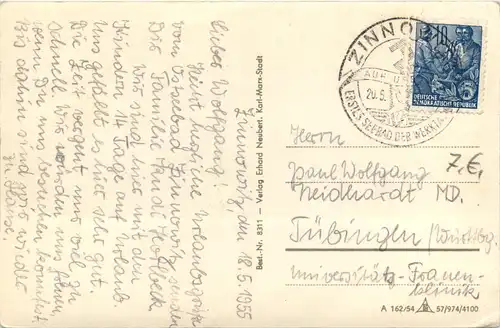 Zinnowitz, den 18.5.1955
Lieber Wolfgang!
Recht herzliche Urlaubsgrüße
vom Ostseebad Zinnowitz senden
Dir Familie
Wir sind hier mit den
Kindern 14 Tage auf Urlaub.
Uns gefällt es hier sehr gut.
Die Zeit vergeht nur viel zu
schnell. Wir würden uns freuen,
wenn Du uns besuchen kommst.
Bis dahin sind wir wieder
zu Hause.
Best.-Nr. 8311 – Verlag Erhard Neubert, Karl-Marx-Stadt
ZINNO
20.5.
ERSTES SEEBAD DER WERKTÄ
10
5
DEUTSCHE
DEMOKRATISCHE REPUBLIK
Herrn
7,€,
Paul Wolfgang
Neidhardt MD.
Tübingen /Württbg.
Universitäts-Frauen-
klinik
A 162/54 57/974/4100